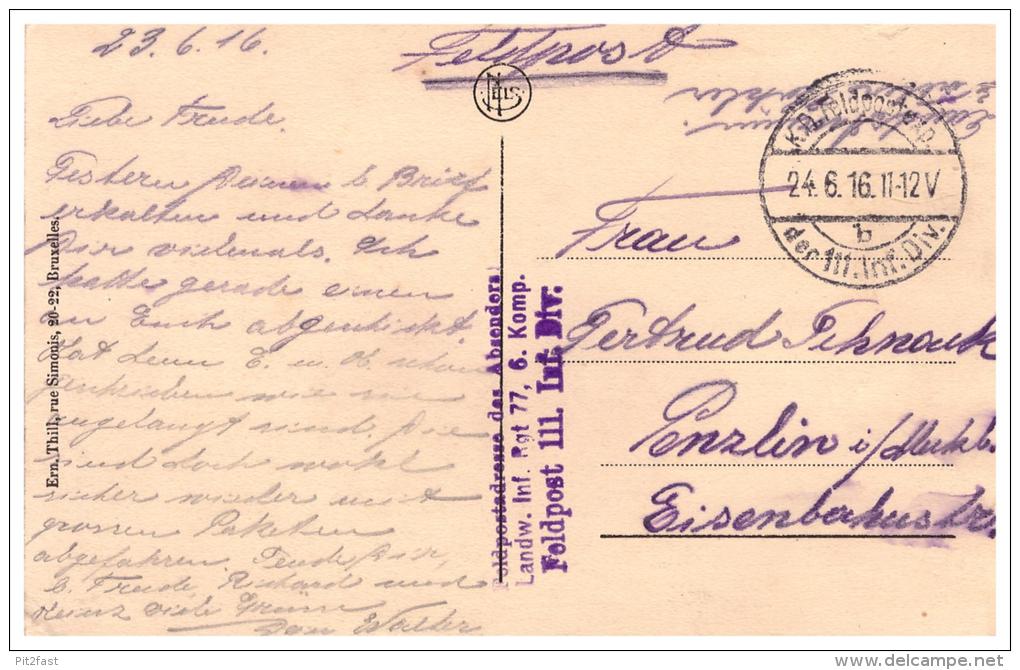 23.6.16.
Feldpost
NELS
K.D. Feldpostexp.
24.6.16.11-12V
b
der 111. Inf. Div.
Liebe Trude.
Gestern Deinen l. Brief
erhalten und danke
Dir vielmals. Ich
hatte gerade einen
an Euch abgeschickt.
Hat denn E. u. schon
geschrieben wie sie
angelangt sind. Sie
sind doch wohl
sicher wieder mit
grossen Paketen
abgefahren. Sende Dir,
l. Trude, Richard und
Heinz viele Grüsse
Dein Walter
Ern. Thill, rue Simonis, 20-22, Bruxelles.
Feldpostadresse des Absenders:
Landw. Inf. Rgt 77, 6. Komp.
Feldpost 111. Inf. Div.
Frau
Gertrud
Penzlin i/Meckl.
Eisenbahnstr.
Pit2fast
www.delcampe.net